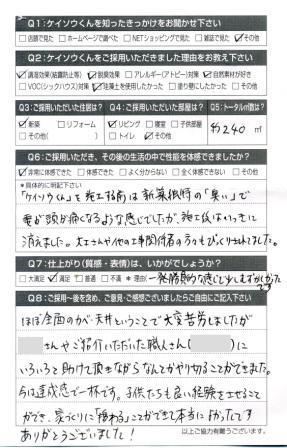 Q1:ケイソウくんを知ったきっかけをお聞かせ下さい
□店頭で見た □ホームページで調べた □NETショッピングで見た □雑誌で見た ☑その他
Q2:ケイソウくんをご採用いただきました理由をお教え下さい
☑調湿効果(結露防止等) ☑脱臭効果 □アレルギー(アトピー)対策 ☑自然素材が好き
□VOC(シックハウス)対策 ☑珪藻土を使用したかった □塗り壁にしたかった □その他
Q3:ご採用いただいた住居は?
☑新築 □リフォーム
□その他( )
Q4:ご採用いただいた部屋は?
☑リビング □寝室 □子供部屋
□トイレ ☑その他
Q5:トータルの㎡数は?
約240 ㎡
Q6:ご採用いただき、その後の生活の中で性能を体感できましたか?
☑非常に体感できた □体感できた □よく分からない □全く体感できない □その他
*具体的に明記下さい
「ケイソウくん」を施工する前は新築独特の「臭い」で
妻が頭が痛くなるような感じでしたが、施工後はいっきに
消えました。大工さんや他の工事関係者の方々もびっくりされてました。
Q7:仕上がり(質感・表情)は、いかがでしょうか?
□大満足 ☑満足 □普通 □不満 *理由(一発勝負的な感じで少しむずかしかったです
Q8:ご採用~後を含め、ご意見・ご感想ございましたらご自由にご記入下さい
ほぼ全面のかべ・天井ということで大変苦労しましたが
さんやご紹介いただいた職人さん( )に
いろいろと助けて頂きながらなんとかやり切ることができました。
今は達成感で一杯です。子供たちも良い経験をさせること
ができ、家づくりに"携わる"ことができて本当によかったです
ありがとうございました!
以上ご協力有難うございます。